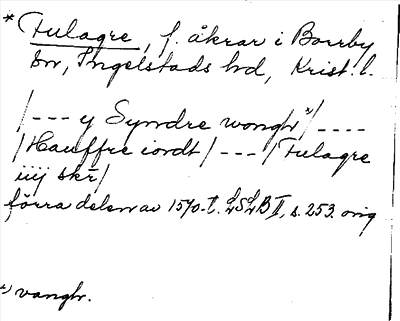 * Fulagre, f. åkrar i Borrby
sn, Ingelstads hd, Krist. l.
/--- y Syndre wongr *)/----
/Hauffre iordt/---/Fulagre
iiij skr̄/
förra delen av 1570-t. LSLB II, s. 253. orig
*) vangr.